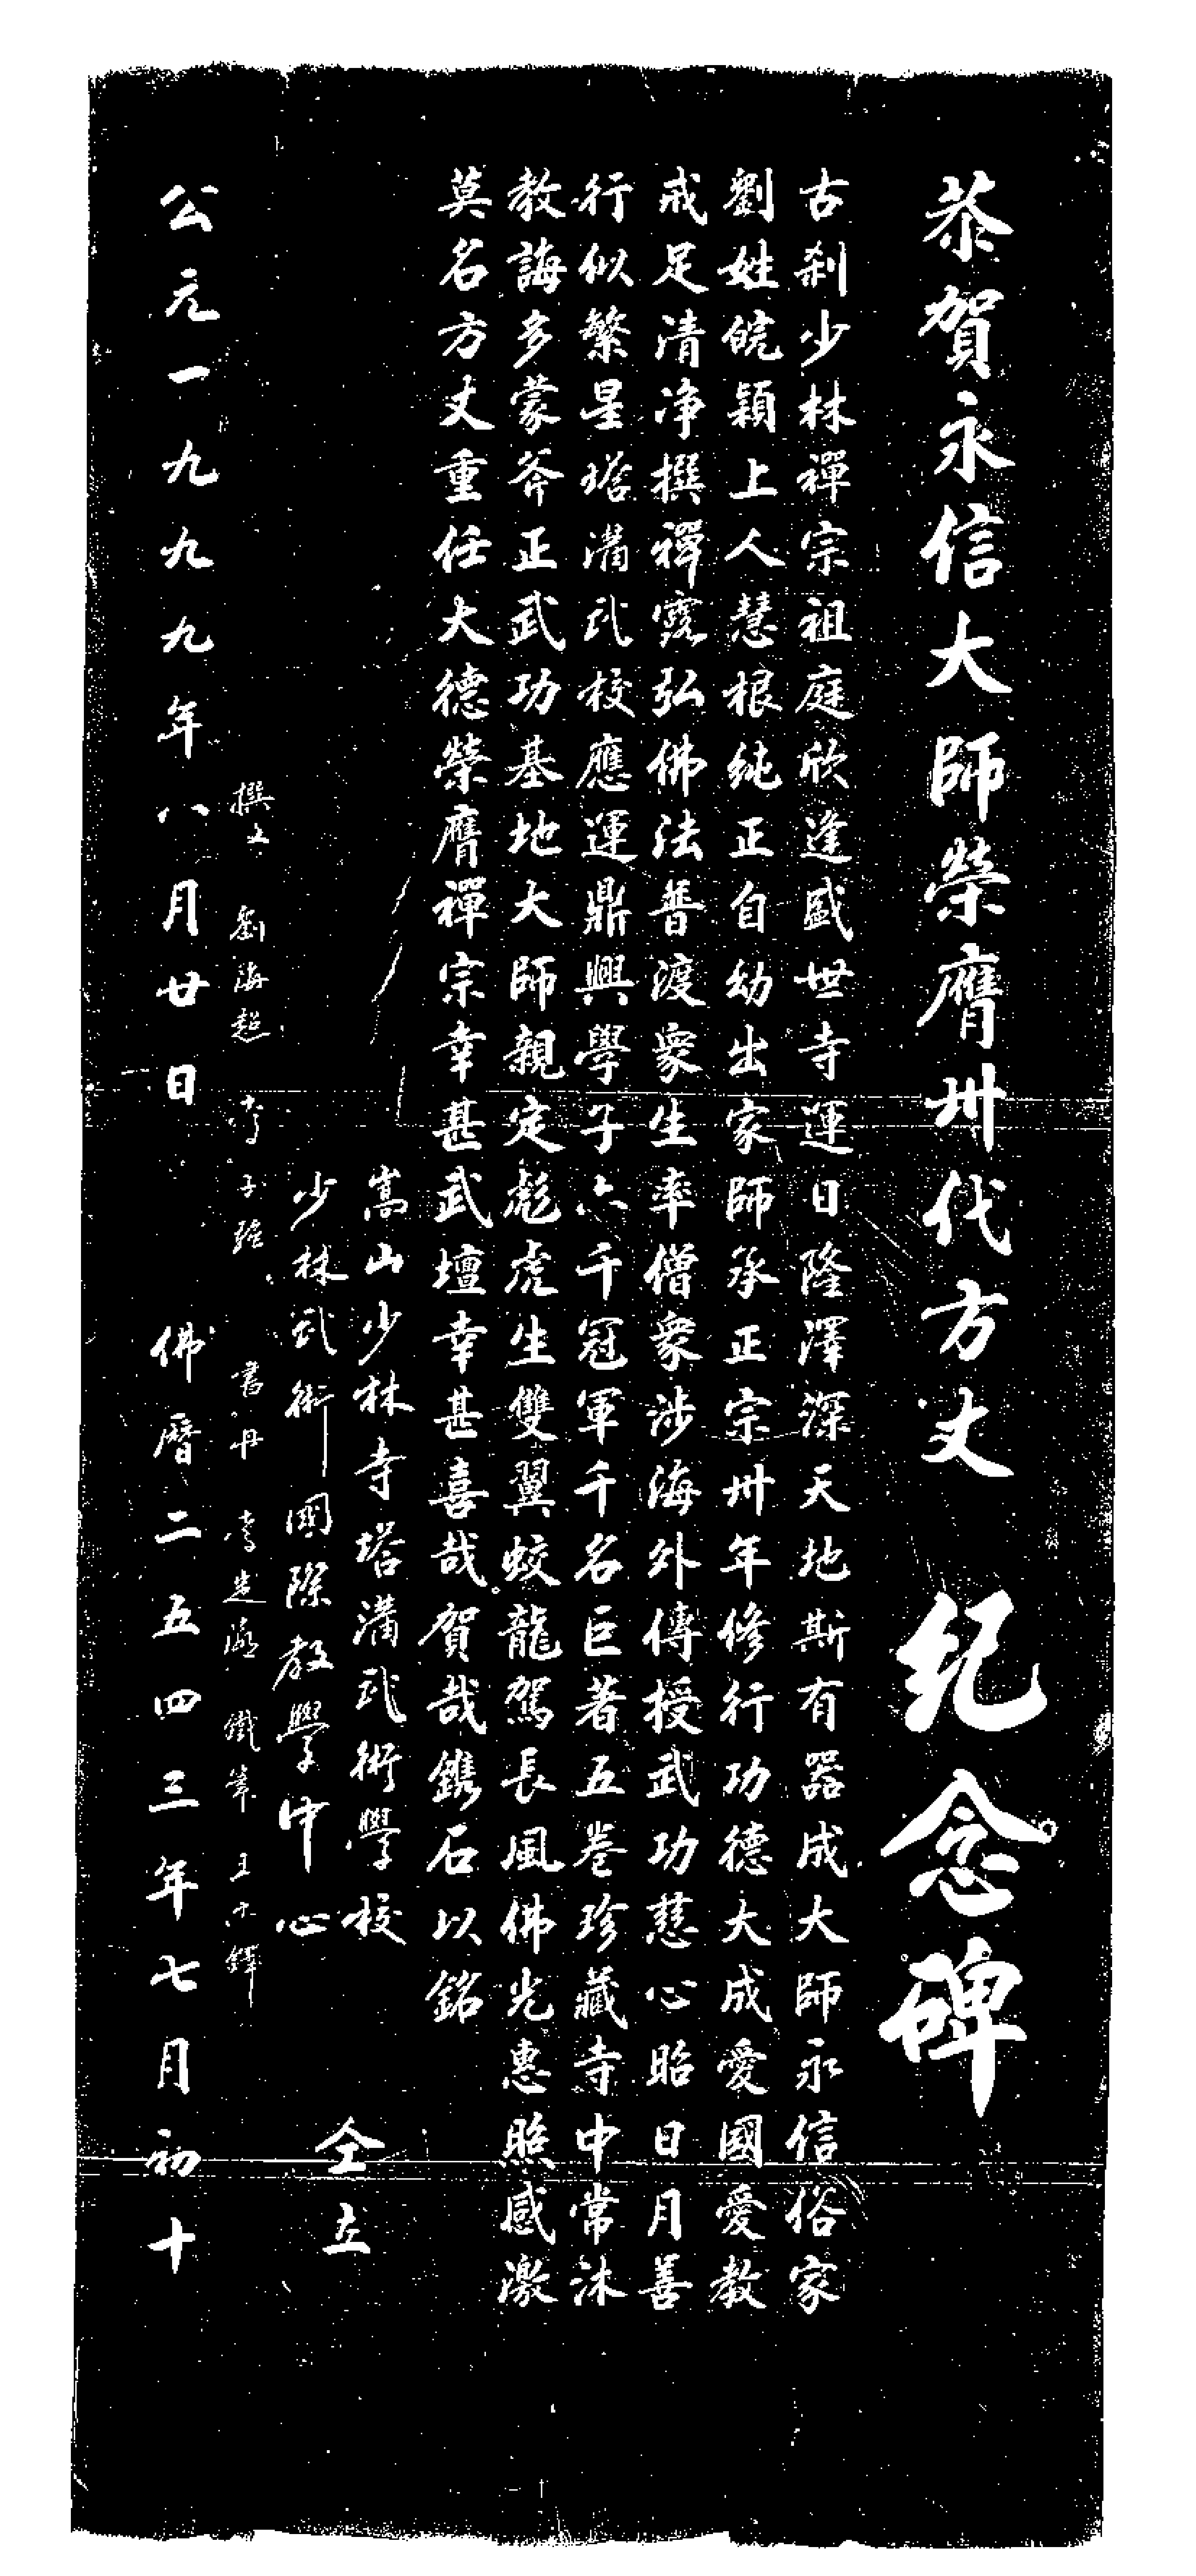 恭賀永信大師榮膺卅代方丈 纪念碑
古刹少林禪宗祖庭欣逢盛世寺運日隆澤深天地斯有器成大師永信俗家
劉姓皖穎上人慧根純正自幼出家師承正宗卅年修行功德大成愛國愛教
戒足清净撰禪露弘佛法普渡衆生率僧衆涉海外傳授武功慈心昭日月善
行似繁星塔溝武校應運鼎興學子六千冠軍千名巨著五卷珍藏寺中常沐
教誨多蒙斧正武功基地大師親定彪虎生雙翼蛟龍駕長風佛光惠照感激
莫名方丈重任大德榮膺禪宗幸甚武壇幸甚喜哉賀哉鐫石以銘
嵩山少林寺塔溝武術學校
少林武術國際教學中心
仝立
撰文 劉海超 李子強 書丹 鐵筆 王小鐸
公元一九九九年八月廿日 佛曆二五四三年七月初十